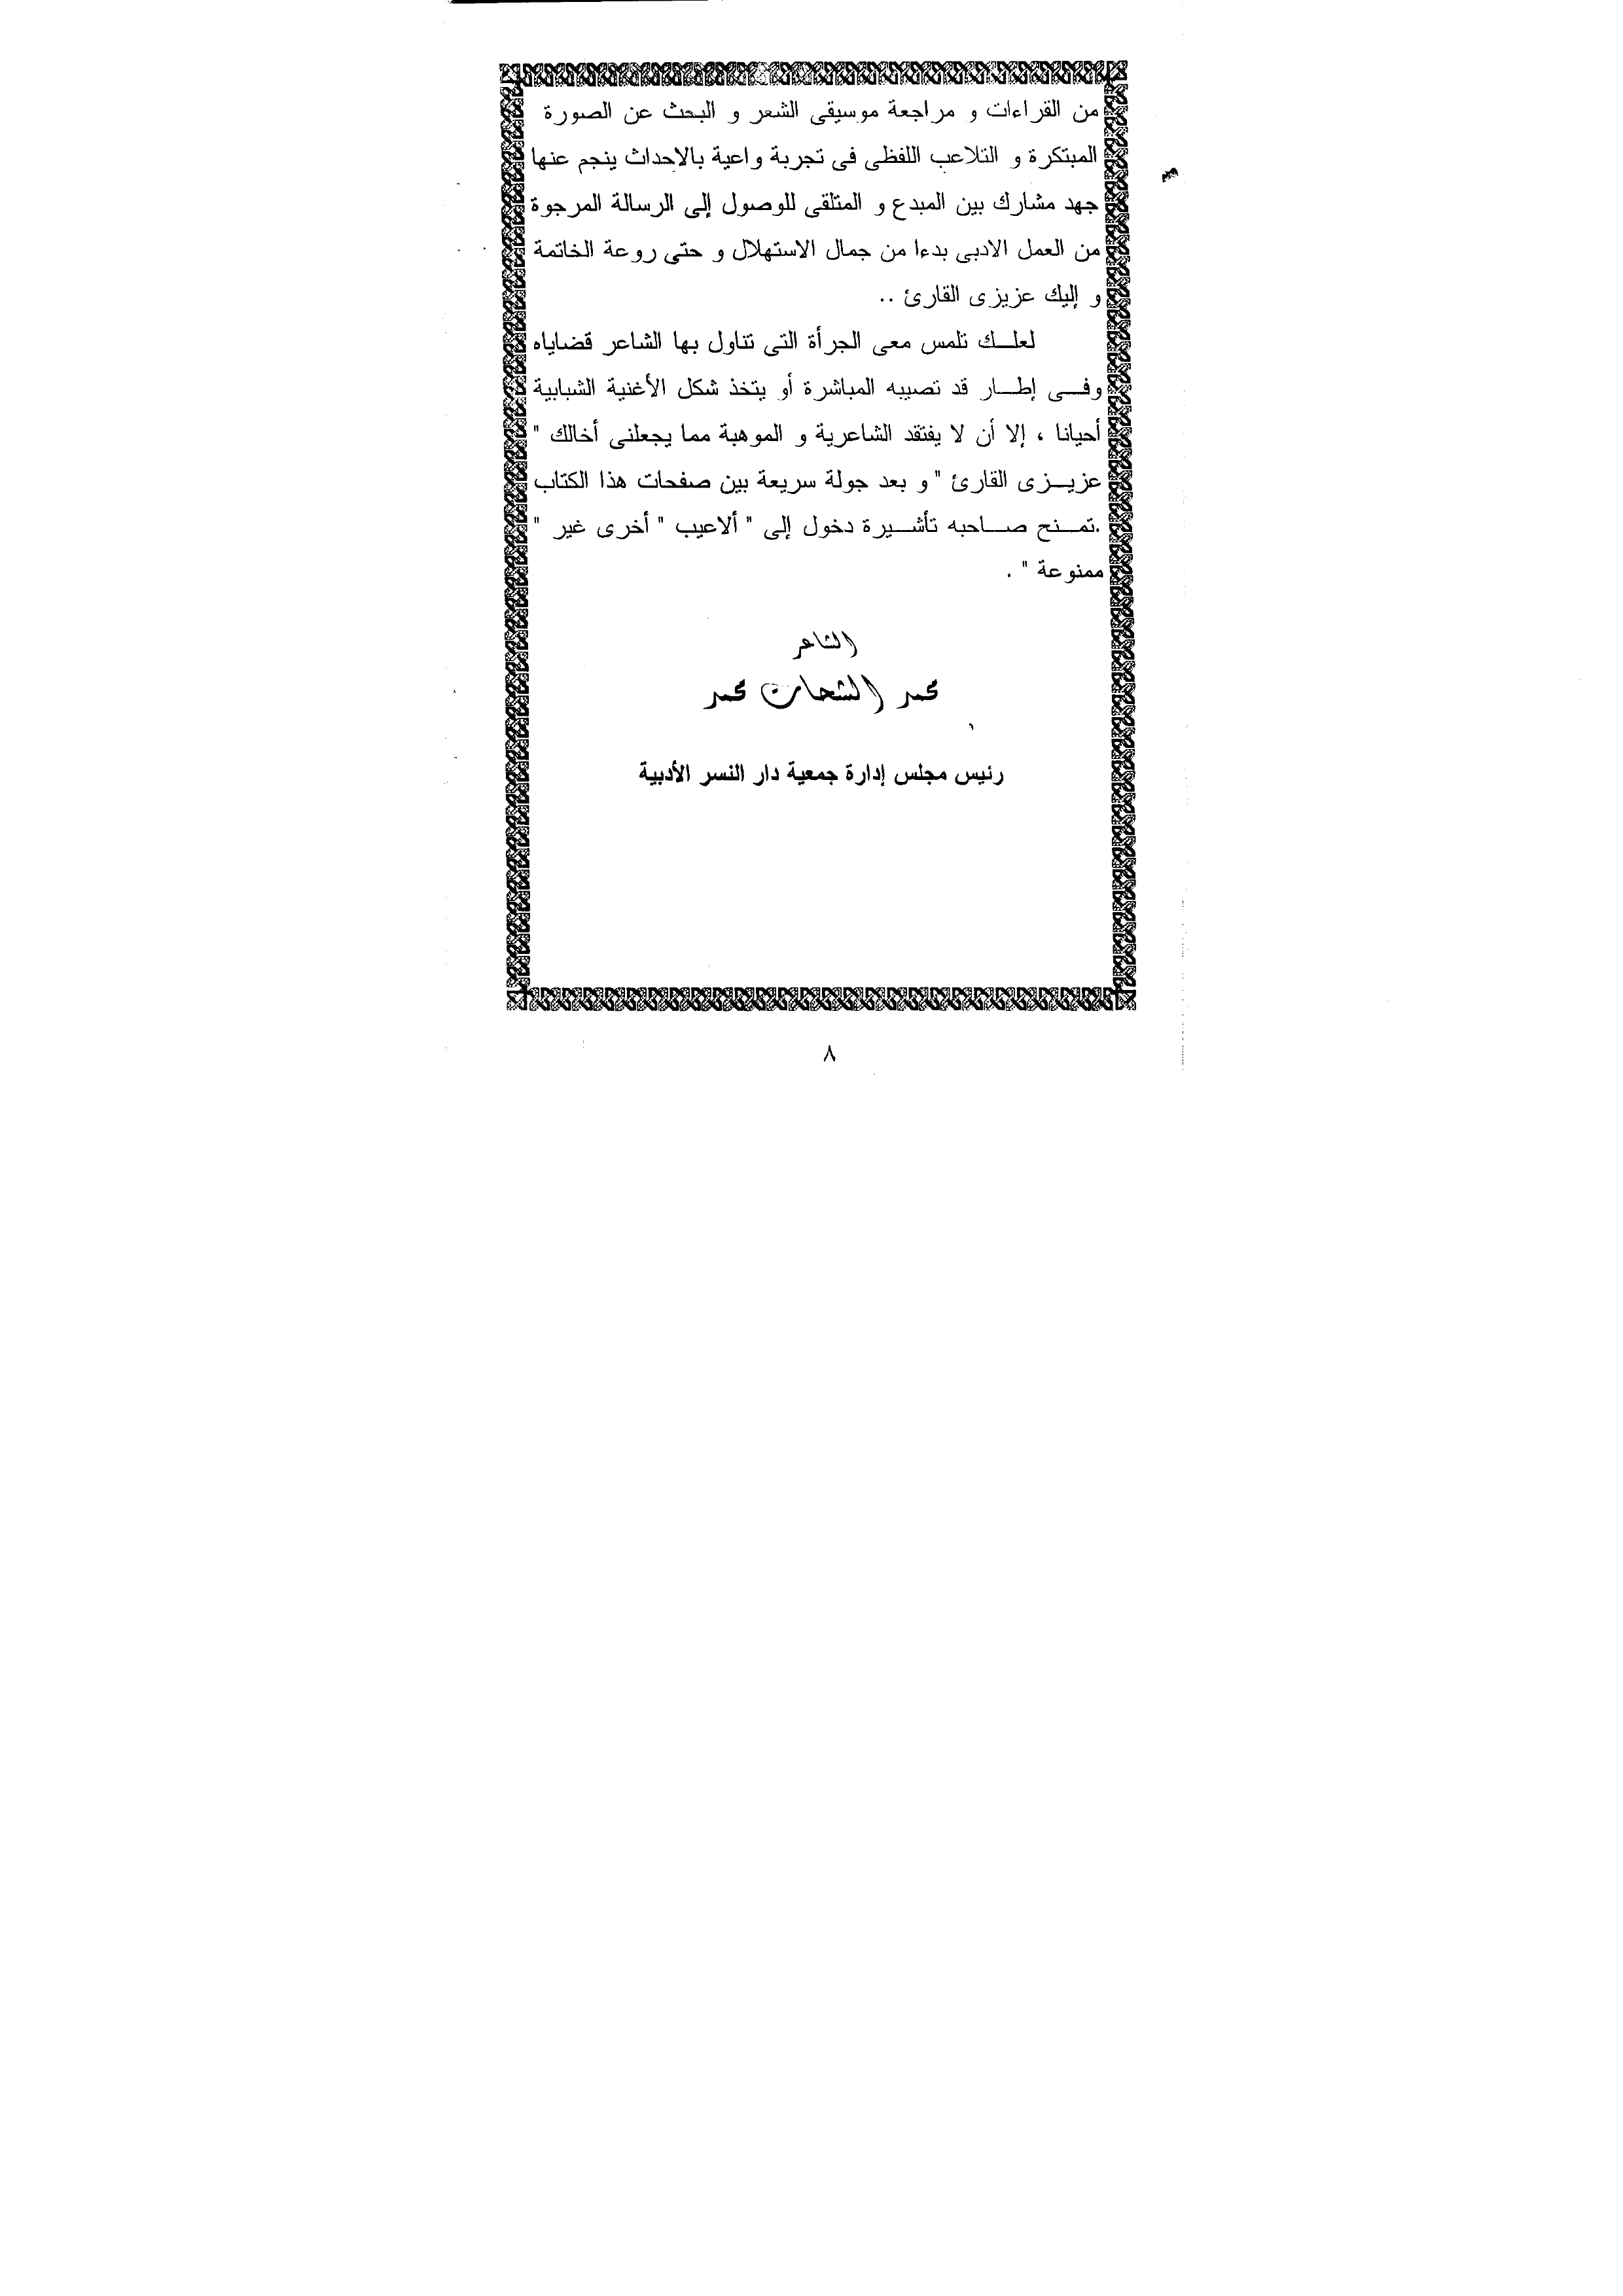 من القراءات و مراجعة موسيقى الشعر و البحث عن الصورة
المبتكرة و التلاعب اللفظى فى تجربة واعية بالاحداث ينجم عنها
جهد مشارك بين المبدع و المتلقى للوصول إلى الرسالة المرجوة
من العمل الادبى بدءا من جمال الاستهلال و حتى روعة الخاتمة
و إليك عزيزى القارئ ..
لعلـــك تلمس معى الجرأة التى تناول بها الشاعر قضاياه
وفـــى إطـــار قد تصيبه المباشرة أو يتخذ شكل الأغنية الشبابية
أحيانا ، إلا أن لا يفتقد الشاعرية و الموهبة مما يجعلنى أخالك "
عزيـــزى القارئ " و بعد جولة سريعة بين صفحات هذا الكتاب
.تمـــنح صـــاحبه تأشـــيرة دخول إلى " ألاعيب " أخرى غير "
ممنوعة " .
الشاعر
محمد الشحات محمد
رئيس مجلس إدارة جمعية دار النسر الأدبية
٨